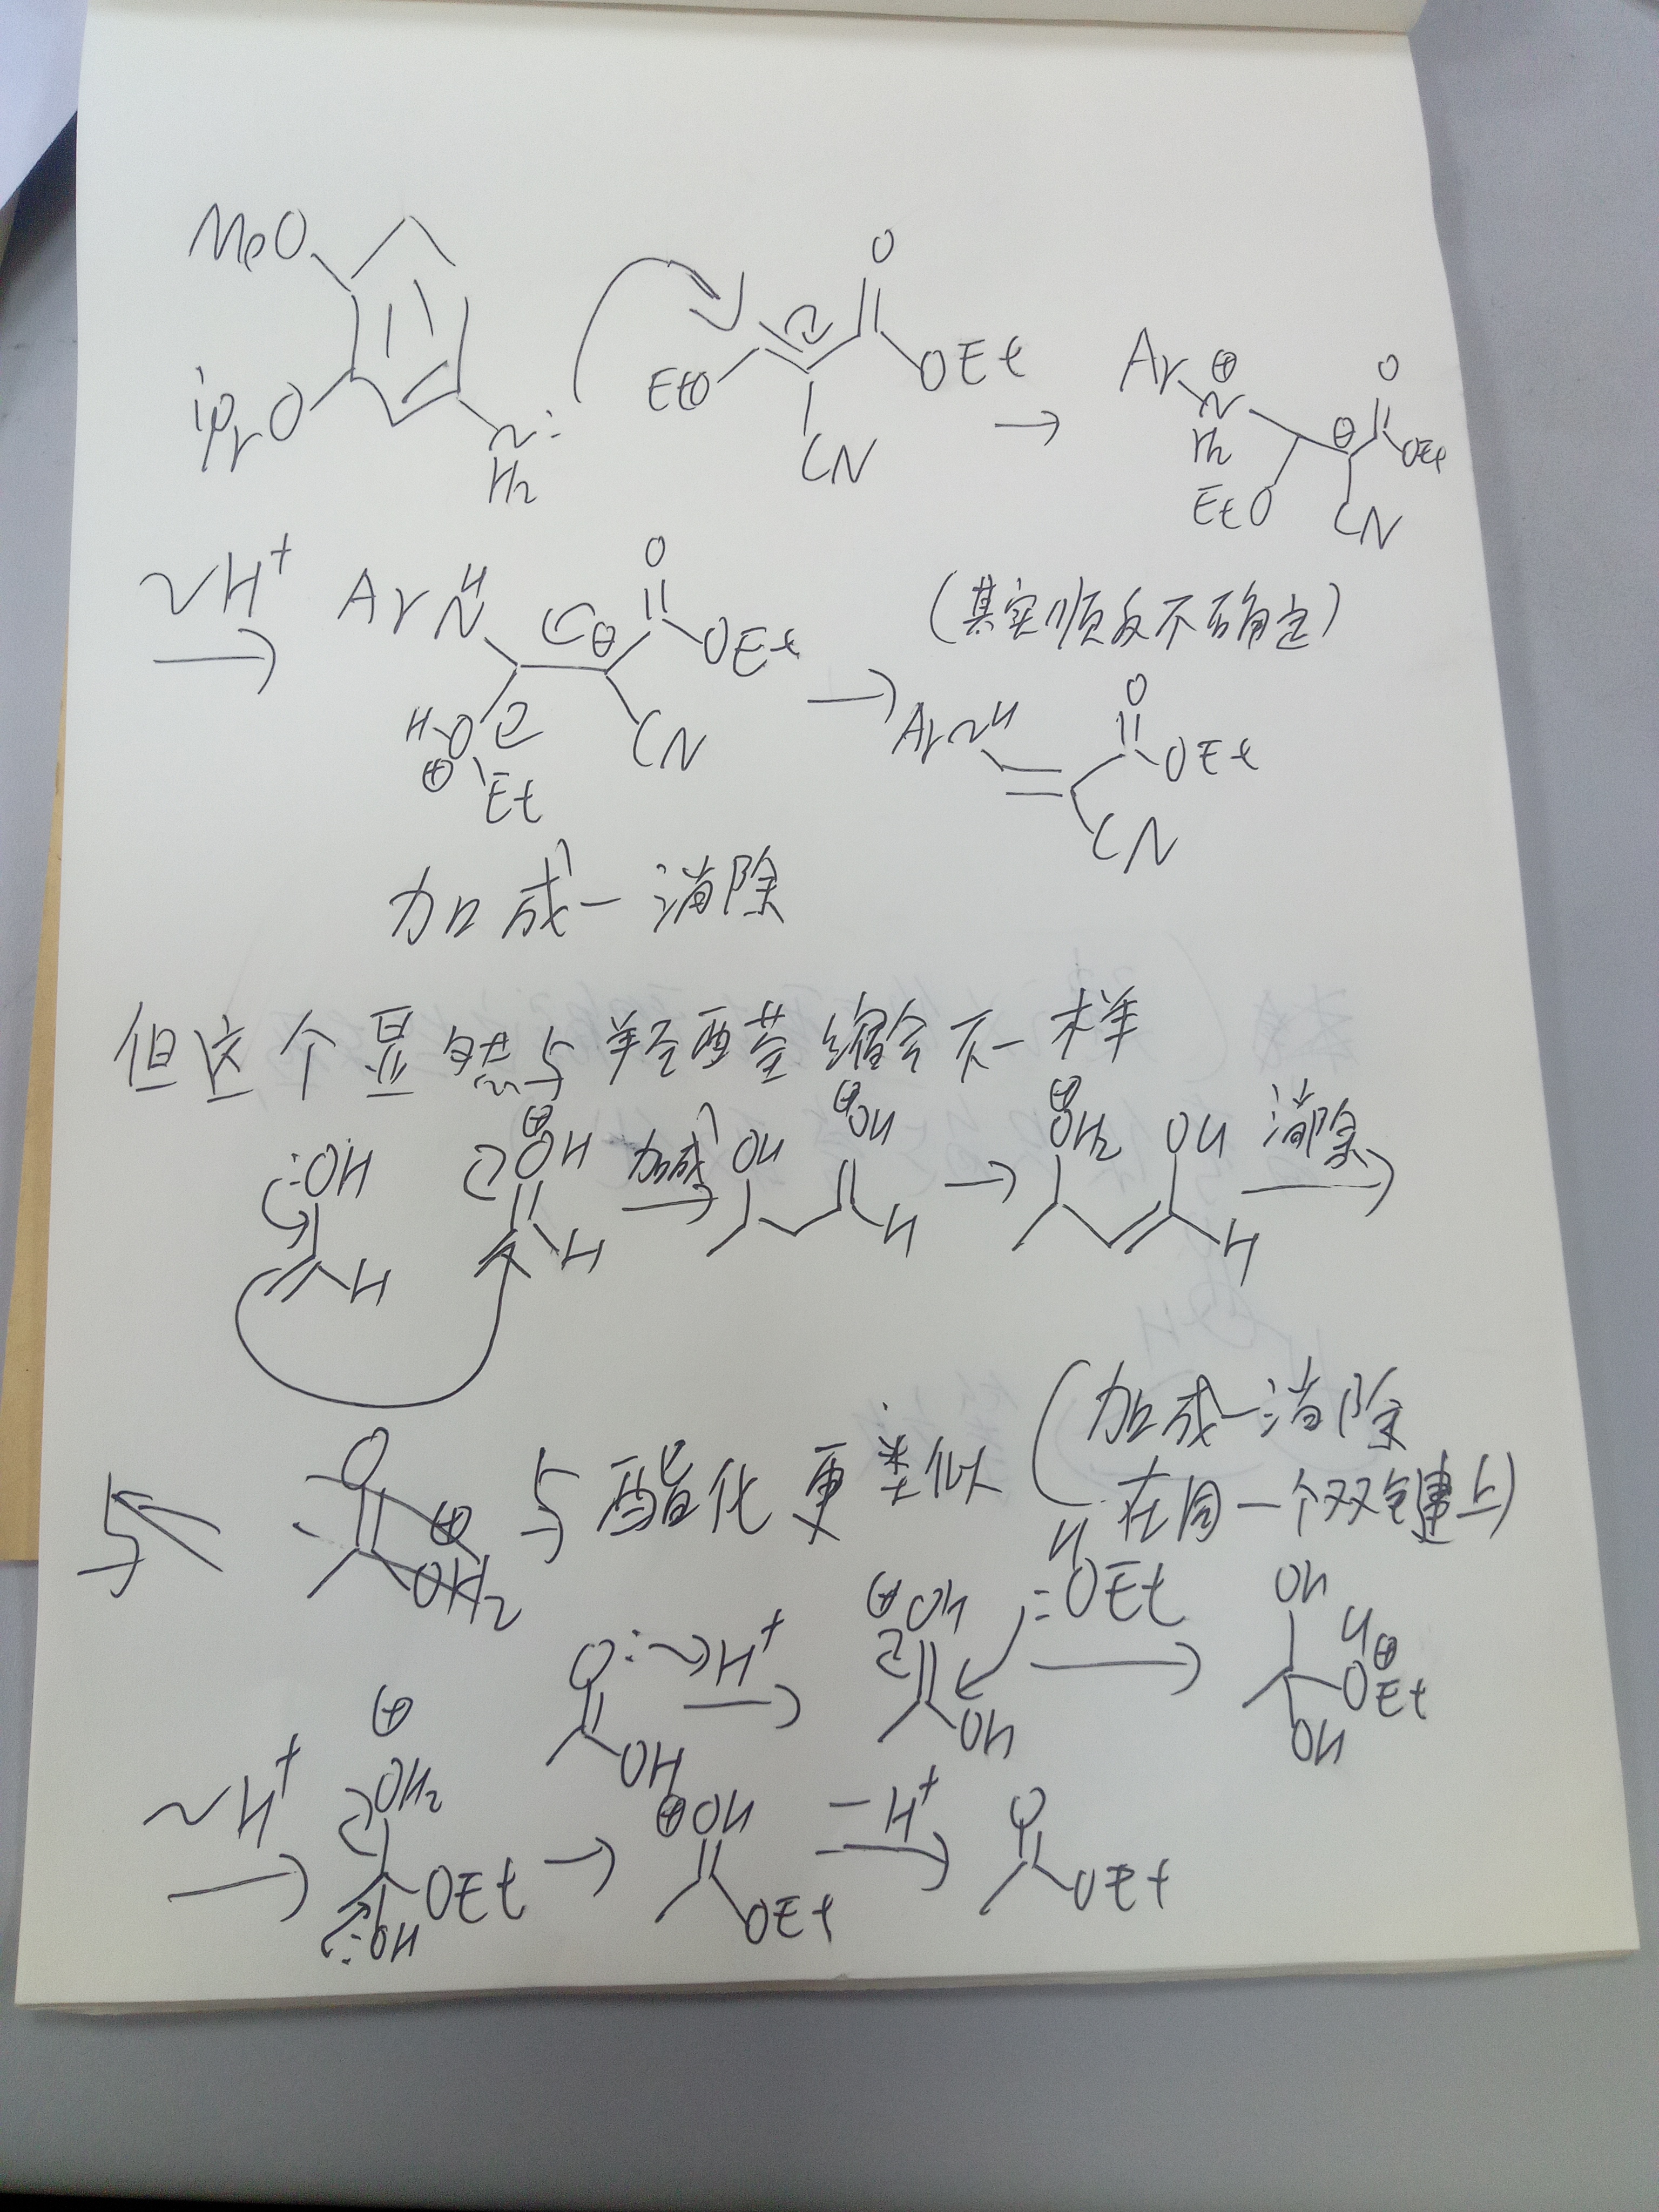 MeO
iPrO
N:
H2
EtO
O
OEt
CN
→
Ar N ⊕
H2
EtO
⊖
O
OEt
CN
~H+
→
Ar N H
H-O
⊕
Et
⊖
O
OEt
CN
→
(其实顺反不确定)
Ar N H
O
OEt
CN
加成-消除
但这个显然与羟醛缩合不一样
:OH
H
⊕
OH
H
加成
→
OH
⊕OH
H
→
⊕
OH2
OH
H
消除
→
与酯化更类似(加成-消除
在同一个双键上)
O:
OH
~H+
→
⊕OH
OH
H
:OEt
→
OH
H
⊕
OEt
OH
~H+
→
⊕
OH2
OEt
:OH
→
⊕OH
OEt
-H+
→
O
OEt